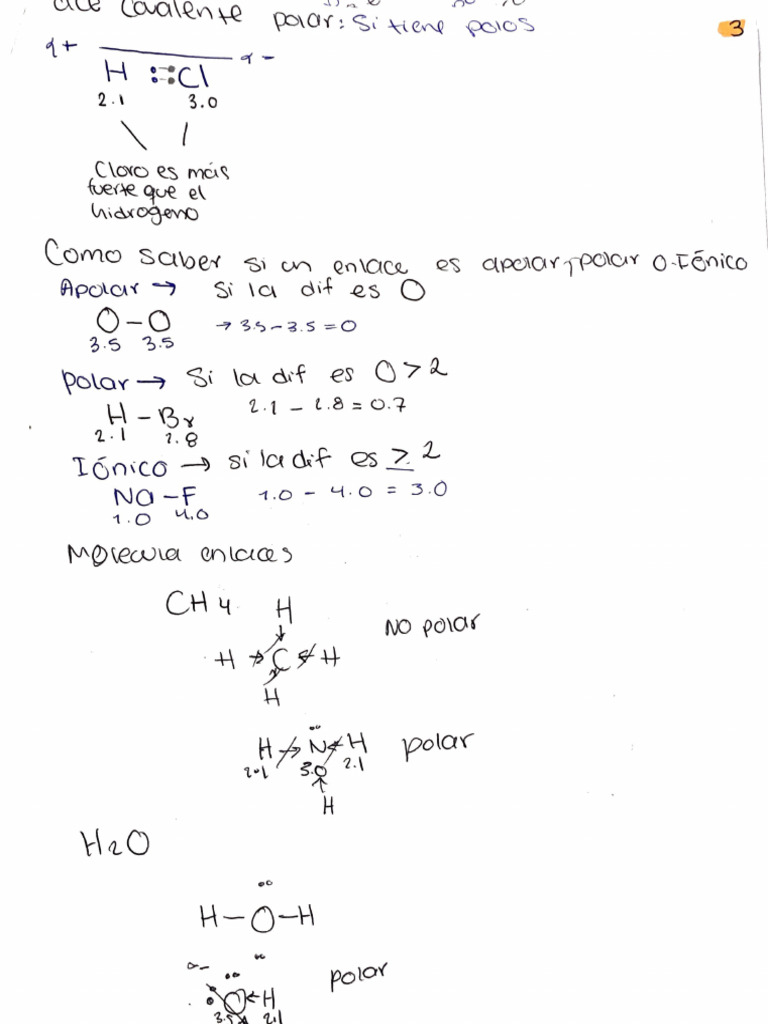 Covalente polar: Si tiene polos
3
H :: Cl
2.1 3.0
Cloro es más
fuerte que el
hidrogeno
Como saber si un enlace es apolar, polar o Iónico
Apolar → Si la dif es 0
O – O → 3.5 – 3.5 = 0
3.5 3.5
Polar → Si la dif es 0 > 2
H – Br 2.1 – 2.8 = 0.7
2.1 2.8
Iónico → si la dif es ≥ 2
Na – F 1.0 – 4.0 = 3.0
1.0 4.0
Molecula enlaces
CH4
H
NO polar
H → C ← H
H
H → N ← H polar
2.1 3.0 2.1
H
H2O
H – O – H
polar
O ← H
3.5 2.1